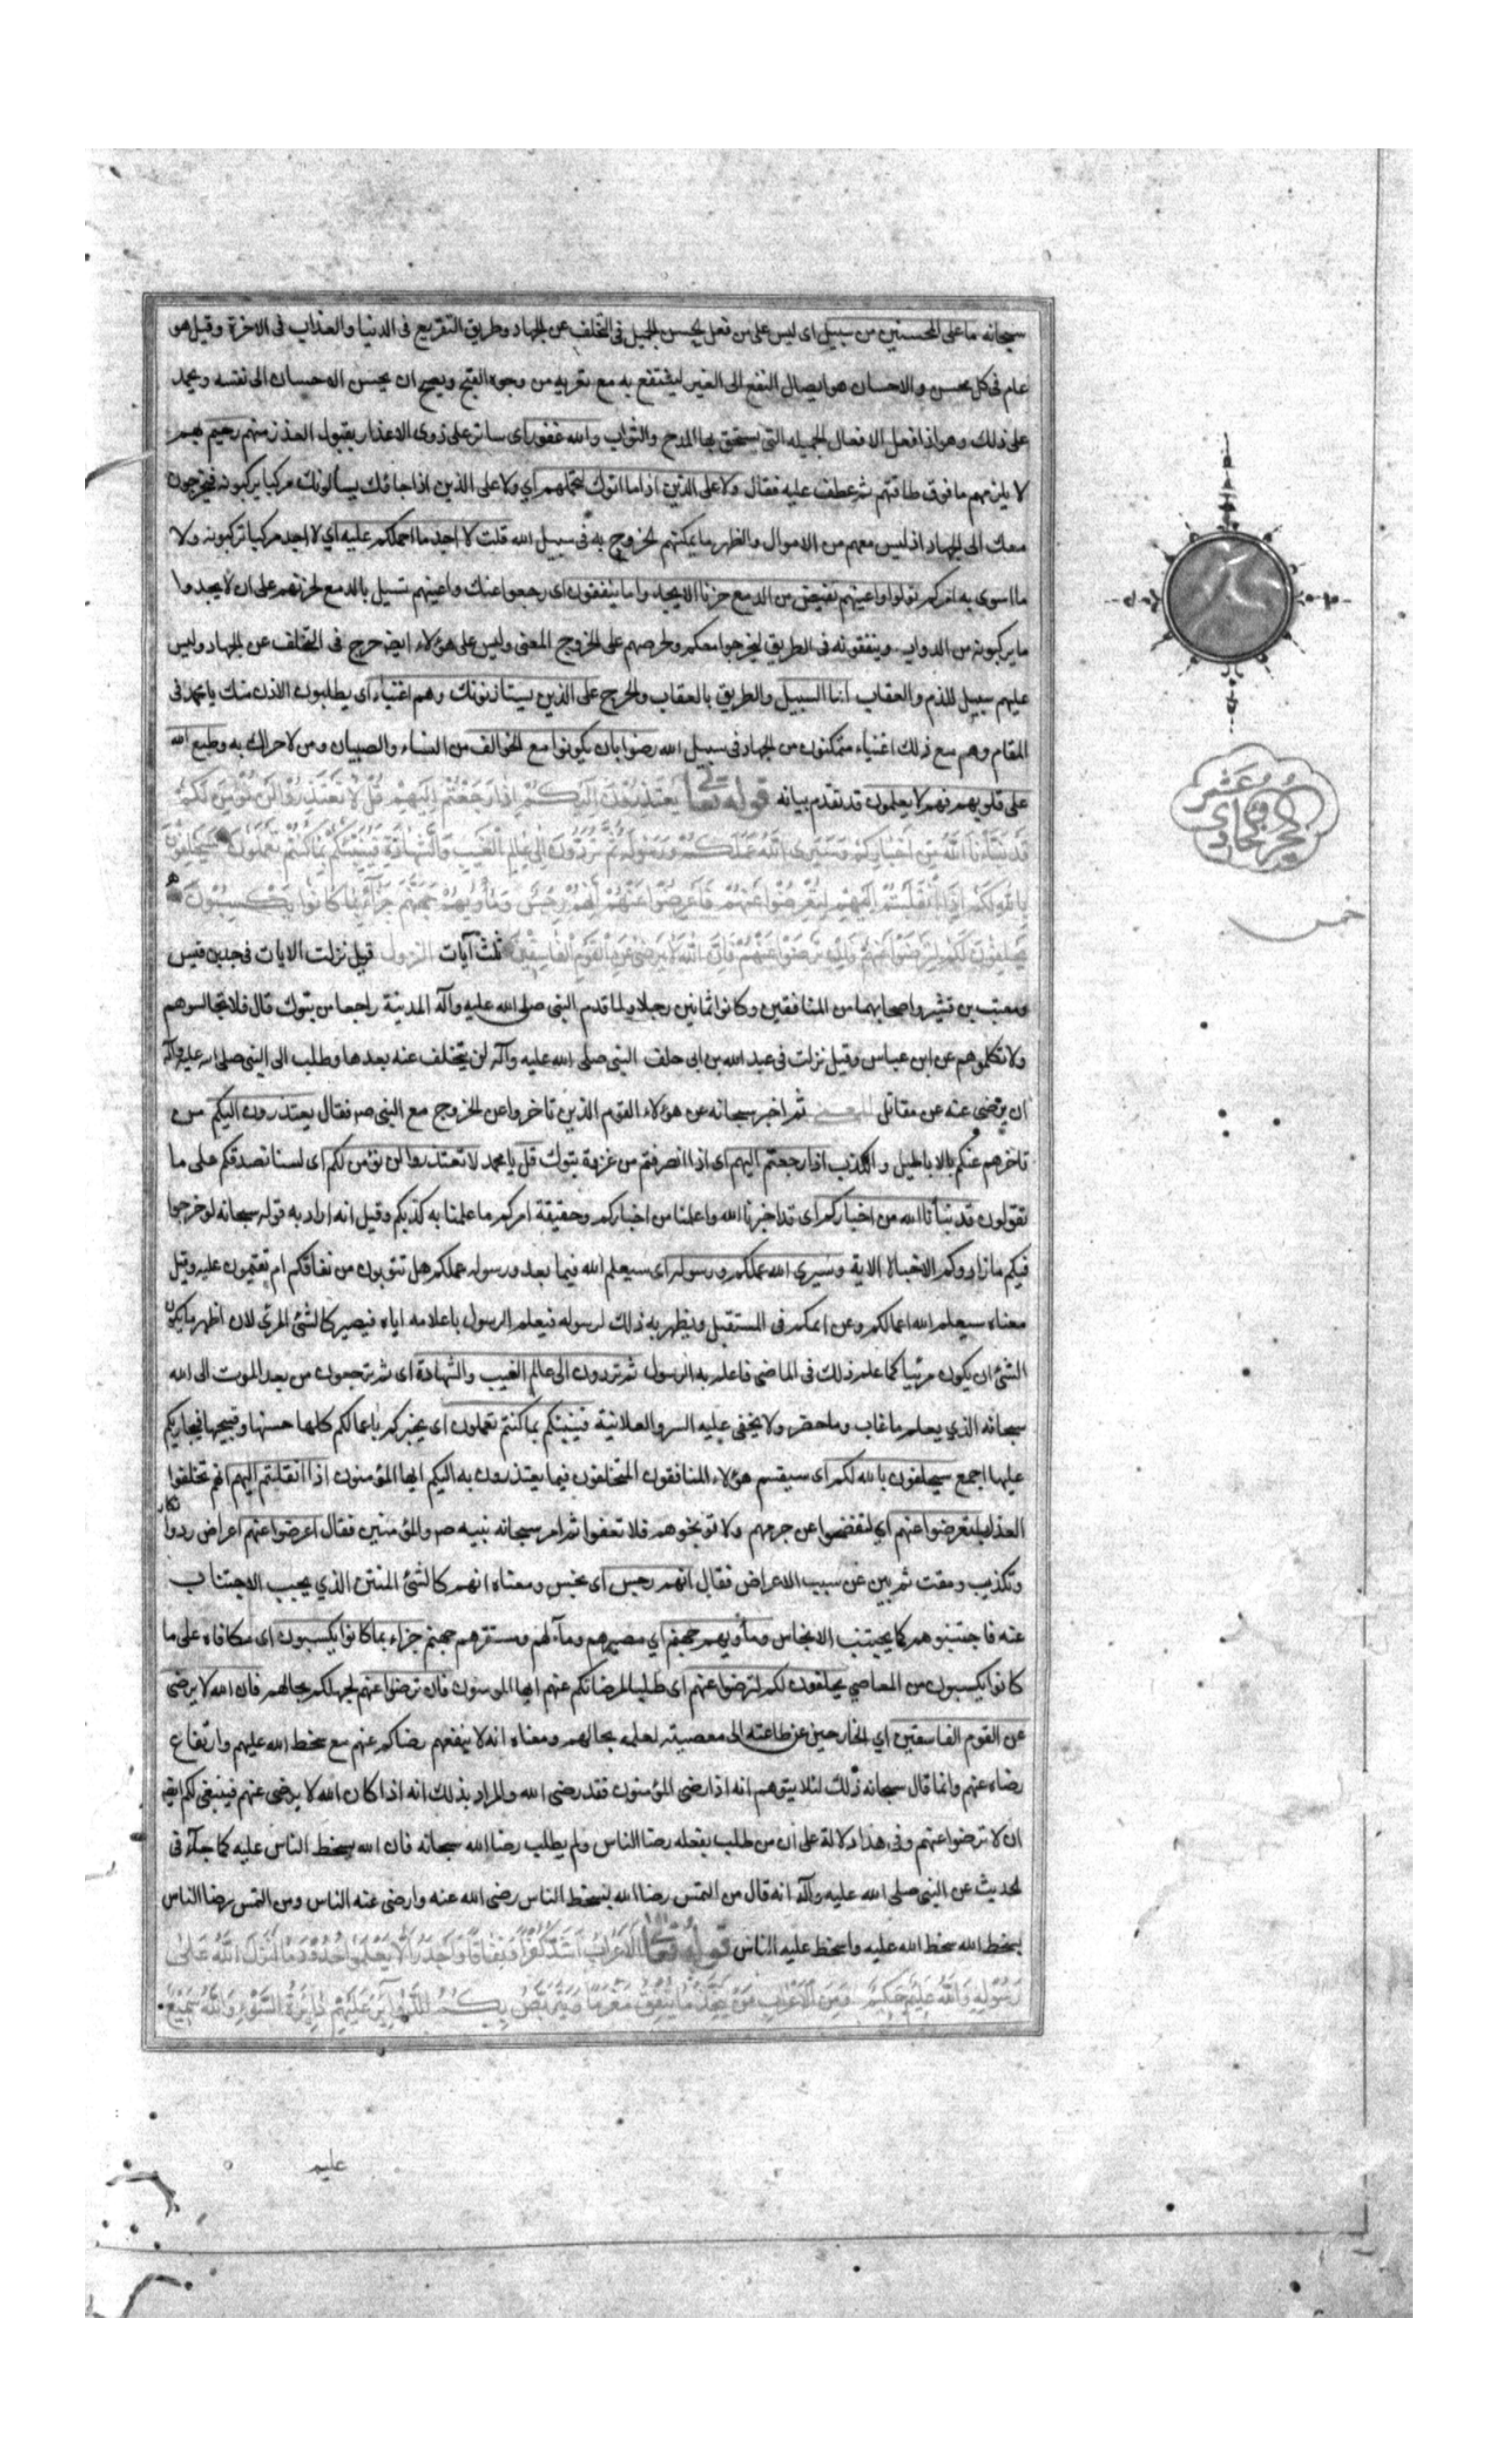 سبحانه ما على المحسنين من سبيل اى ليس على من فعل الحسن الجميل فى التخلف عن الجهاد وطريق التقريع فى الدنيا والعذاب فى الاخرة وقيل هو
عام فى كل محسن والاحسان هو ايصال النفع الى الغير لينتفع به مع تعريه من وجوه القبح ويصح ان يحسن الاحسان الى نفسه ويحمد
على ذلك وهو اذا فعل الافعال الجميله التى يستحق بها المدح والثواب والله غفور اى ساتر على ذوى الاعذار بقبول العذر منهم رحيم بهم
لا يلزمهم ما فوق طاقتهم ثم عطف عليه فقال ولا على الذين اذا ما اتوك لتحملهم اي ولا على الذين اذا جاؤك يسألونك مركبا يركبونه فيخرجون
معك الى الجهاد اذ ليس معهم من الاموال والظهر ما يمكنهم الخروج به فى سبيل الله قلت لا اجد ما احملكم عليه اي لا اجد مركبا تركبونه ولا
ما اسوى به امركم تولوا واعينهم تفيض من الدمع حزنا الا يجدوا ما ينفقون اى رجعوا عنك واعينهم تسيل بالدمع لحزنهم على ان لا يجدوا
ما يركبونه من الدواب وينفقونه فى الطريق ليخرجوا معكم ولحرصهم على الخروج المعنى وليس على هؤلاء ايضا حرج فى التخلف عن الجهاد وليس
عليهم سبيل للذم والعقاب انما السبيل والطريق بالعقاب والحرج على الذين يستاذنونك وهم اغنياء اى يطلبون الاذن منك يا محمد فى
المقام وهم مع ذلك اغنياء متمكنون من الجهاد فى سبيل الله رضوا بان يكونوا مع الخوالف من النساء والصبيان ومن لا حراك به وطبع الله
على قلوبهم فهم لا يعلمون قد تقدم بيانه قوله تعالى يَعْتَذِرُونَ إِلَيْكُمْ إِذَا رَجَعْتُمْ إِلَيْهِمْ قُلْ لَا تَعْتَذِرُوا لَنْ نُؤْمِنَ لَكُمْ
قَدْ نَبَّأَنَا اللَّهُ مِنْ أَخْبَارِكُمْ وَسَيَرَى اللَّهُ عَمَلَكُمْ وَرَسُولُهُ ثُمَّ تُرَدُّونَ إِلَى عَالِمِ الْغَيْبِ وَالشَّهَادَةِ فَيُنَبِّئُكُمْ بِمَا كُنْتُمْ تَعْمَلُونَ سَيَحْلِفُونَ
بِاللَّهِ لَكُمْ إِذَا انْقَلَبْتُمْ إِلَيْهِمْ لِتُعْرِضُوا عَنْهُمْ فَأَعْرِضُوا عَنْهُمْ إِنَّهُمْ رِجْسٌ وَمَأْوَيهُمْ جَهَنَّمُ جَزَاءً بِمَا كَانُوا يَكْسِبُونَ
يَحْلِفُونَ لَكُمْ لِتَرْضَوْا عَنْهُمْ فَإِنْ تَرْضَوْا عَنْهُمْ فَإِنَّ اللَّهَ لَا يَرْضَى عَنِ الْقَوْمِ الْفَاسِقِينَ ثلث آيات النزول قيل نزلت الايات فى جد بن قيس
ومعتب بن قشير واصحابهما من المنافقين وكانوا ثمانين رجلا ولما قدم النبى صلى الله عليه وآله المدينة راجعا من تبوك قال لا تجالسوهم
ولا تكلموهم عن ابن عباس وقيل نزلت فى عبد الله بن ابى حلف النبى صلى الله عليه وآله لن يتخلف عنه بعدها وطلب الى النبى صلى الله عليه وآله
ان يرضى عنه عن مقاتل المعنى ثم اخبر سبحانه عن هؤلاء القوم الذين تاخروا عن الخروج مع النبى ص فقال يعتذرون اليكم من
تاخرهم عنكم بالاباطيل والكذب اذا رجعتم اليهم اى اذا انصرفتم من غزوة تبوك قل يا محمد لا تعتذروا لن نؤمن لكم اى لسنا نصدقكم على ما
تقولون قد نبأنا الله من اخباركم اى قد اخبرنا الله واعلمنا من اخباركم وحقيقة امركم ما علمنا به كذبكم وقيل انه اراد به قوله سبحانه لو خرجوا
فيكم ما زادوكم الا خبالا الاية وسيرى الله عملكم ورسوله اى سيعلم الله فيما بعد ورسوله عملكم هل تتوبون من نفاقكم ام تقيمون عليه وقيل
معناه سيعلم الله اعمالكم وعزائمكم فى المستقبل ويظهر به ذلك لرسوله فيعلم الرسول باعلامه اياه فيصير كالشئ المرئى لان اظهر ما يكون
الشئ ان يكون مرئيا كما علم ذلك فى الماضى فاعلم به الرسول ثم تردون الى عالم الغيب والشهادة اى ثم ترجعون من بعد الموت الى الله
سبحانه الذي يعلم ما غاب وما حضر ولا يخفى عليه السر والعلانية فينبئكم بما كنتم تعملون اى يخبركم باعمالكم كلها حسنها وقبيحها فيجازيكم
عليها اجمع سيحلفون بالله لكم اى سيقسم هؤلاء المنافقون المتخلفون فيما يعتذرون به اليكم ايها المؤمنون اذا انقلبتم اليهم انهم تخلفوا
لعذر لتعرضوا عنهم اي لتصفحوا عن جرمهم ولا توبخوهم فلا تعنفوا ثم امر سبحانه نبيه ص والمؤمنين فقال اعرضوا عنهم اعراض رد وانكار
وتكذيب ومقت ثم بين عن سبب الاعراض فقال انهم رجس اى نجس ومعناه انهم كالشئ المنتن الذي يجب الاجتناب
عنه فاجتنبوهم كما يجتنب الانجاس ومأويهم جهنم اي مصيرهم ومآلهم ومستقرهم جهنم جزاء بما كانوا يكسبون اى مكافاه على ما
كانوا يكسبون من المعاصي يحلفون لكم لترضوا عنهم اى طلبا لمرضاتكم عنهم ايها المومنون فان ترضوا عنهم لجهلكم بحالهم فان الله لا يرضى
عن القوم الفاسقين اي الخارجين عن طاعته الى معصيته لعلمه بحالهم ومعناه انه لا ينفعهم رضاكم عنهم مع سخط الله عليهم وارتفاع
رضاه عنهم وانما قال سبحانه ذلك لئلا يتوهم انه اذا رضى المؤمنون فقد رضى الله والمراد بذلك انه اذا كان الله لا يرضى عنهم فينبغى لكم ايضا
ان لا ترضوا عنهم وفى هذا دلالة على ان من طلب بفعله رضا الناس ولم يطلب رضا الله سبحانه فان الله يسخط الناس عليه كما جآء فى
الحديث عن النبى صلى الله عليه وآله انه قال من التمس رضا الله بسخط الناس رضى الله عنه وارضى عنه الناس ومن التمس رضا الناس
بسخط الله سخط الله عليه واسخط عليه الناس قوله تعالى الْأَعْرَابُ أَشَدُّ كُفْرًا وَنِفَاقًا وَأَجْدَرُ أَلَّا يَعْلَمُوا حُدُودَ مَا أَنْزَلَ اللَّهُ عَلَى
رَسُولِهِ وَاللَّهُ عَلِيمٌ حَكِيمٌ وَمِنَ الْأَعْرَابِ مَنْ يَتَّخِذُ مَا يُنْفِقُ مَغْرَمًا وَيَتَرَبَّصُ بِكُمُ الدَّوَائِرَ عَلَيْهِمْ دَائِرَةُ السَّوْءِ وَاللَّهُ سَمِيعٌ
الجزء الحادى عشر
خمس
عليم